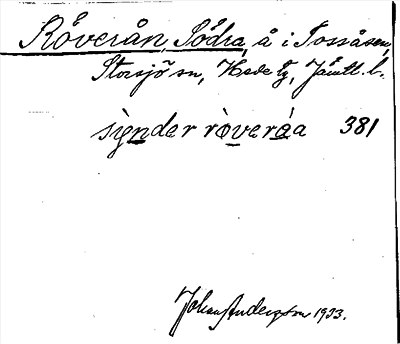 Röverån, Södra, å i Tossåsen,
Storsjö sn, Hede tg, Jämtl. l.
sìǥndər ròvəráa 381
Johan Anderson 1933.